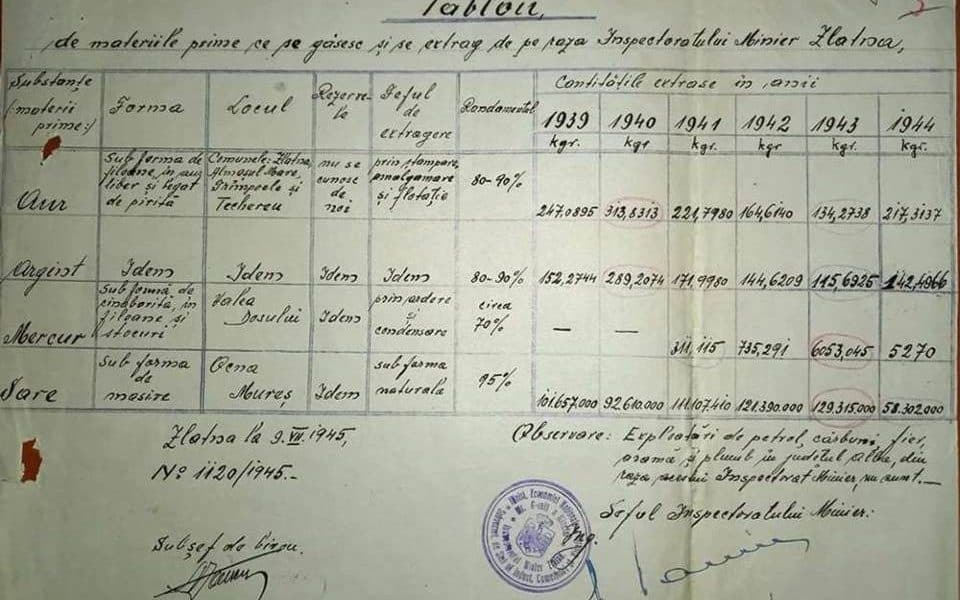 Tablou,
de materiile prime ce se găsesc și se extrag de pe raza Inspectoratului Minier Zlatna,
Substanțe
(materii
prime:)
Forma
Locul
Rezerve-
le
Felul
de
extragere
Randamentul
Cantitățile extrase în anii
1939 1940 1941 1942 1943 1944
kgr. kgr kgr. kgr kgr. kgr.
Aur
Sub forma de
filoane, în aur
liber și legat
de pirită
Comunele: Zlatna,
Almașul Mare,
Trîmpoele și
Techereu
nu se
cunosc
de
noi
prin ștampare,
amalgamare
și flotație
80-90%
247.0895 313,8313 221,7980 164,6140 134,2738 217,3137
Argint Idem Idem Idem Idem 80-90% 152,2744 289,2074 171,9980 144,6209 115,6925 142,4966
Mercur
Sub formă de
cinabărită, în
filoane și
stocuri
Valea
Dosului
Idem
prin ardere
și
condensare
circa
70%
— — 311,115 735,291 6053,045 5270
Sare
Sub forma
de
masive
Ocna
Mureș
Idem
sub forma
naturală
95%
101.657.000 92.610.000 111.107.410 121.390.000 129.315.000 58.302.000
Zlatna la 9.VII.1945,
No 1120/1945.-
Observare: Exploatări de petrol, cărbuni, fier,
aramă și plumb în județul Alba, din
raza acestui Inspectorat Minier, nu sunt.—
Șeful Inspectoratului Minier:
Ing.
Subșef de birou.